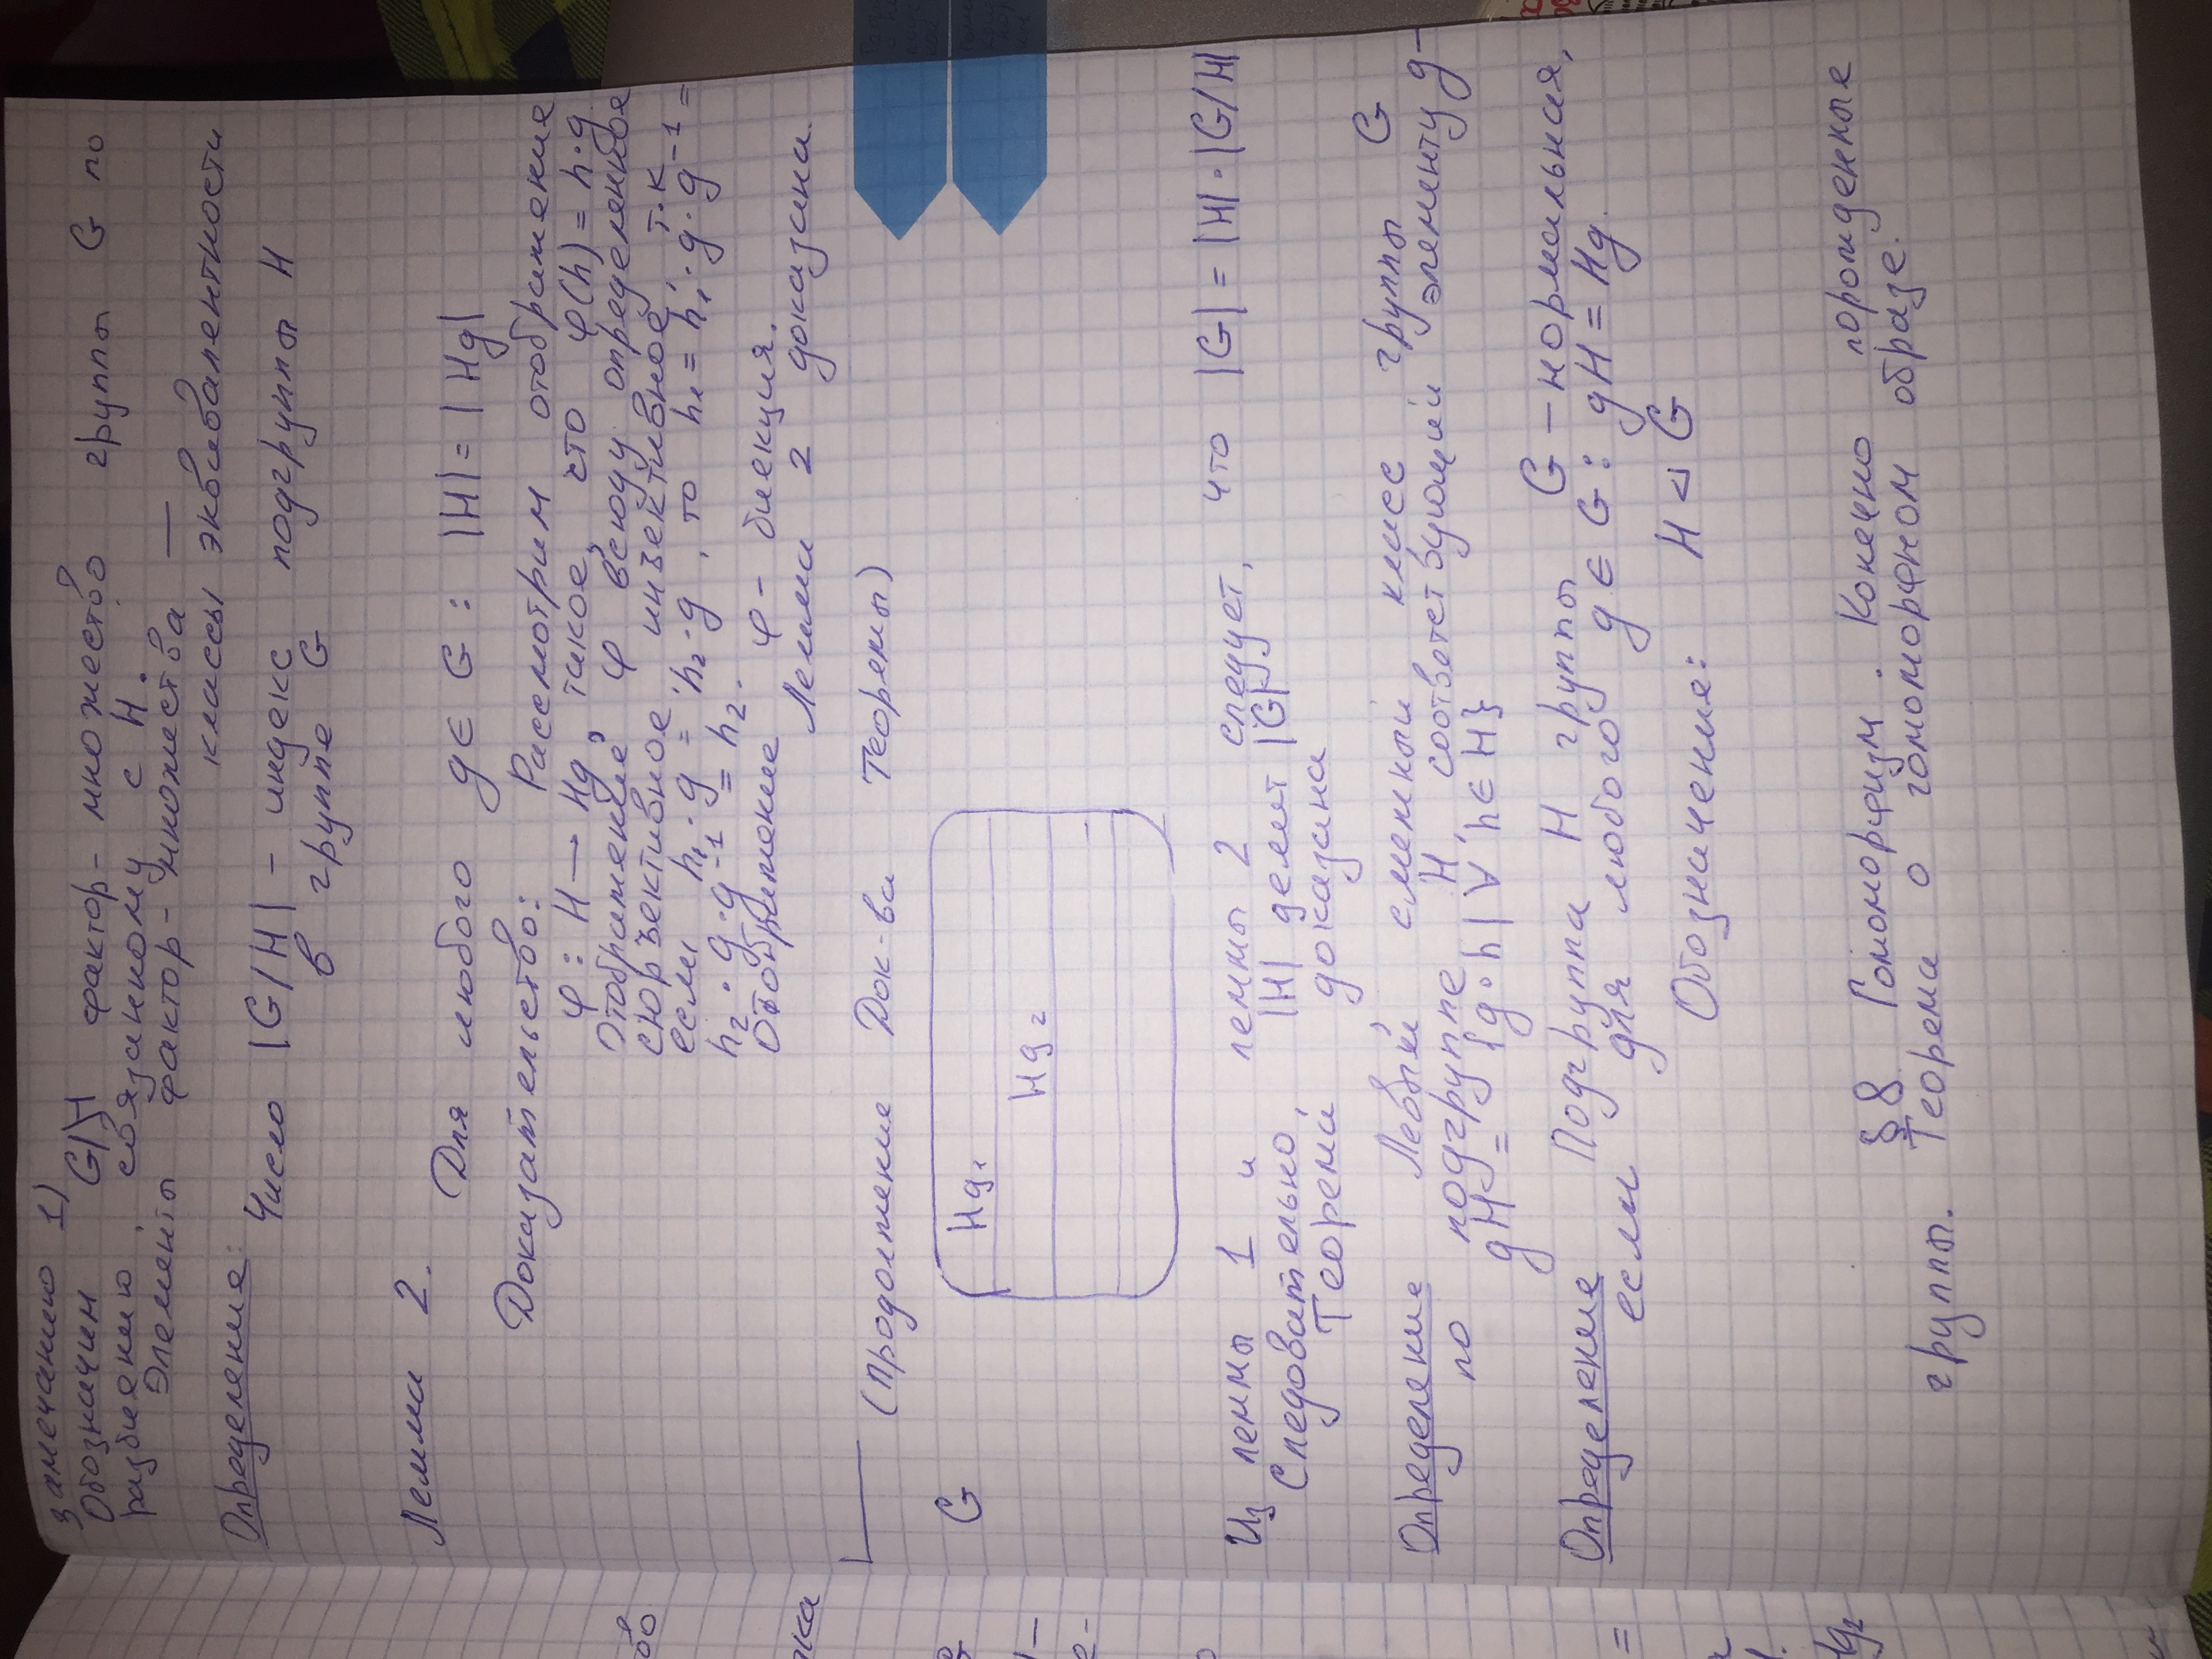 замечанию 1)
Обозначим G/H фактор-множество группы G по
разбиению, связанному с H.
Элементы фактор-множества —
классы эквивалентности
Определение:
Число |G/H| - индекс подгруппы H
в группе G
Лемма 2.
Для любого g ∈ G : |H| = |Hg|
Доказательство: Рассмотрим отображение
φ : H → Hg, такое, что φ(h) = h·g
Отображение φ всюду определенное
сюръективное, инъективное, т.к
если h₁·g = h₂·g, то h₁ = h₁·g·g⁻¹ =
h₂·g·g⁻¹ = h₂.
Отображение φ - биекция.
Лемма 2 доказана.
(Продолжение Док-ва Теоремы)
G
Hg₁
Hg₂
Из леммы 1 и леммы 2 следует, что |G| = |H|·|G/H|
Следовательно, |H| делит |G|
Теорема доказана
Определение Левый смежный класс группы G
по подгруппе H, соответствующий элементу g -
gH = {g·h | ∀ h ∈ H}
Определение Подгруппа H группы G - нормальная,
если для любого g ∈ G : gH = Hg.
Обозначение: H ⊲ G
§8. Гомоморфизм. Конечно порожденные
группы. Теорема о гомоморфном образе.